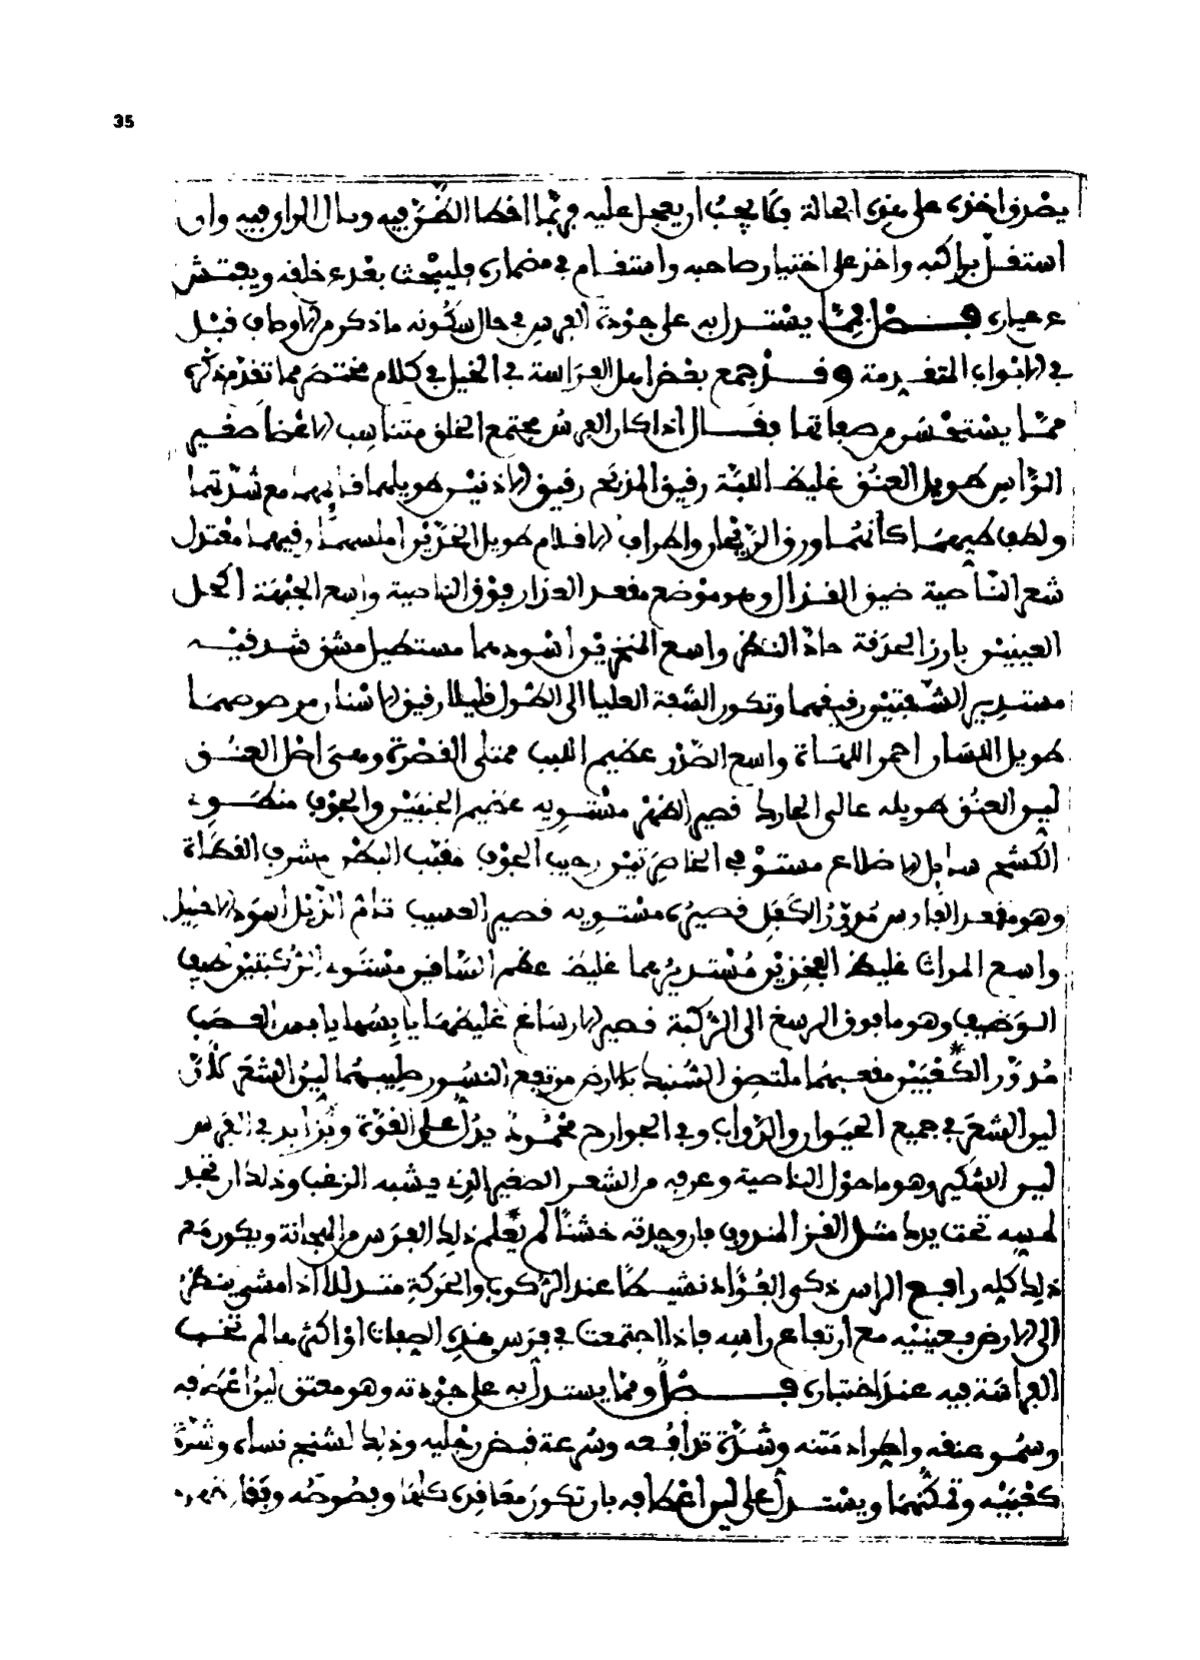 35
على هذه الحالة فما يجب ان يعجل عليه فربما اخطا الظن فيه وان
استقل براكبه واخذ على اختيار صاحبه في مضماره فليبحث بعدء خلفه ويفتش
عن عياره فصل فيما يستدل به على جودة الفرس في حال سكونه ما ذكر من الاوصاف قبل
في الابواب المتقدمة وقد جمع بعض اهل الفراسة في الخيل في كلام مختصر مما تقدم ذكره
مما يستحسن من صفاتها فقال اذا كان الفرس مجتمع الخلق متناسب الاعضا صغير
الراس طويل العنق غليظ اللبة رقيق المذبح رقيق الاذنين طويلهما قايمهما مع شدتهما
ولطف طيهما كانهما ورق الريحان واطراف الاقلام طويل الخدين املسهما رقيقهما معتدل
شعر الناصية ضيق القذال وهو موضع مقعد العذار فوق الناصية واسع الجبهة اكحل
العينين بارز الحدقة حاد النظر واسع المنخرين اسودهما مستطيل مشق شدقيه
مستدير الشفتين رقيقهما وتكون الشفة العليا الى الطول قليلا رقيق الاسنان مرصوصها
طويل اللسان احمر اللهاة واسع الصدر عظيم اللبب ممتلى القصرة وهى اصل العنق
لين العنق طويله عالى الحارك قصير الظهر مستويه عظيم الجنبين والجوف منطوى
الكشح سابل الاضلاع مستوفى الخاصرتين رحيب الجوف مقبب البطن مشرف القطاة
وهو مقعد الفارس مدور الكفل قصيره مستويه قصير العسيب تام الذيل اسود الاحليل
واسع المراث غليظ الفخذين مستديرهما غليظ عظم الساقين مستوى الركبتين
الوظيف وهو ما فوق الرسغ الى الركبة قصير الارساغ غليظها يابسها يابس العصب
مدور الكعبين مقعبهما ملتصق السنبك بالارض مرتفع النسور صليبهما لين الشعر لان
لين الشعر في جميع الحيوان والدواب وفي الجوارح محمود يدل على القوة ويزاد في الفرس
لين الشكير وهو ما حول الناصية وعرفه من الشعر الصغير الذى يشبه الزغب وذلك ان تجد
لمسه تحت يدك مثل القز المندوف فان وجدته خشنا لم يعلم ذلك الفرس من الهجانة ويكون مع
ذلك كله رافع الراس ذكى الفؤاد نشيطا عند الركوب والحركة متدللا اذا مشى ينظر
الى الارض بعينيه مع ارتفاع راسه فاذا اجتمعت في فرس هذه الصفات او اكثرها لم تخب
الفراسة فيه عند اختباره فصل ومما يستدل به على جودته وهو معتق لين اعطافه
وسمو عنقه واطراد متنه وشدة ترافعه وسرعة قبض رجليه وذلك لشنج نساه وشدة
كعبيه وتمكنهما ويستدل على لين اعطافه بان تكون معاقده كلها وفصوصه وفقار